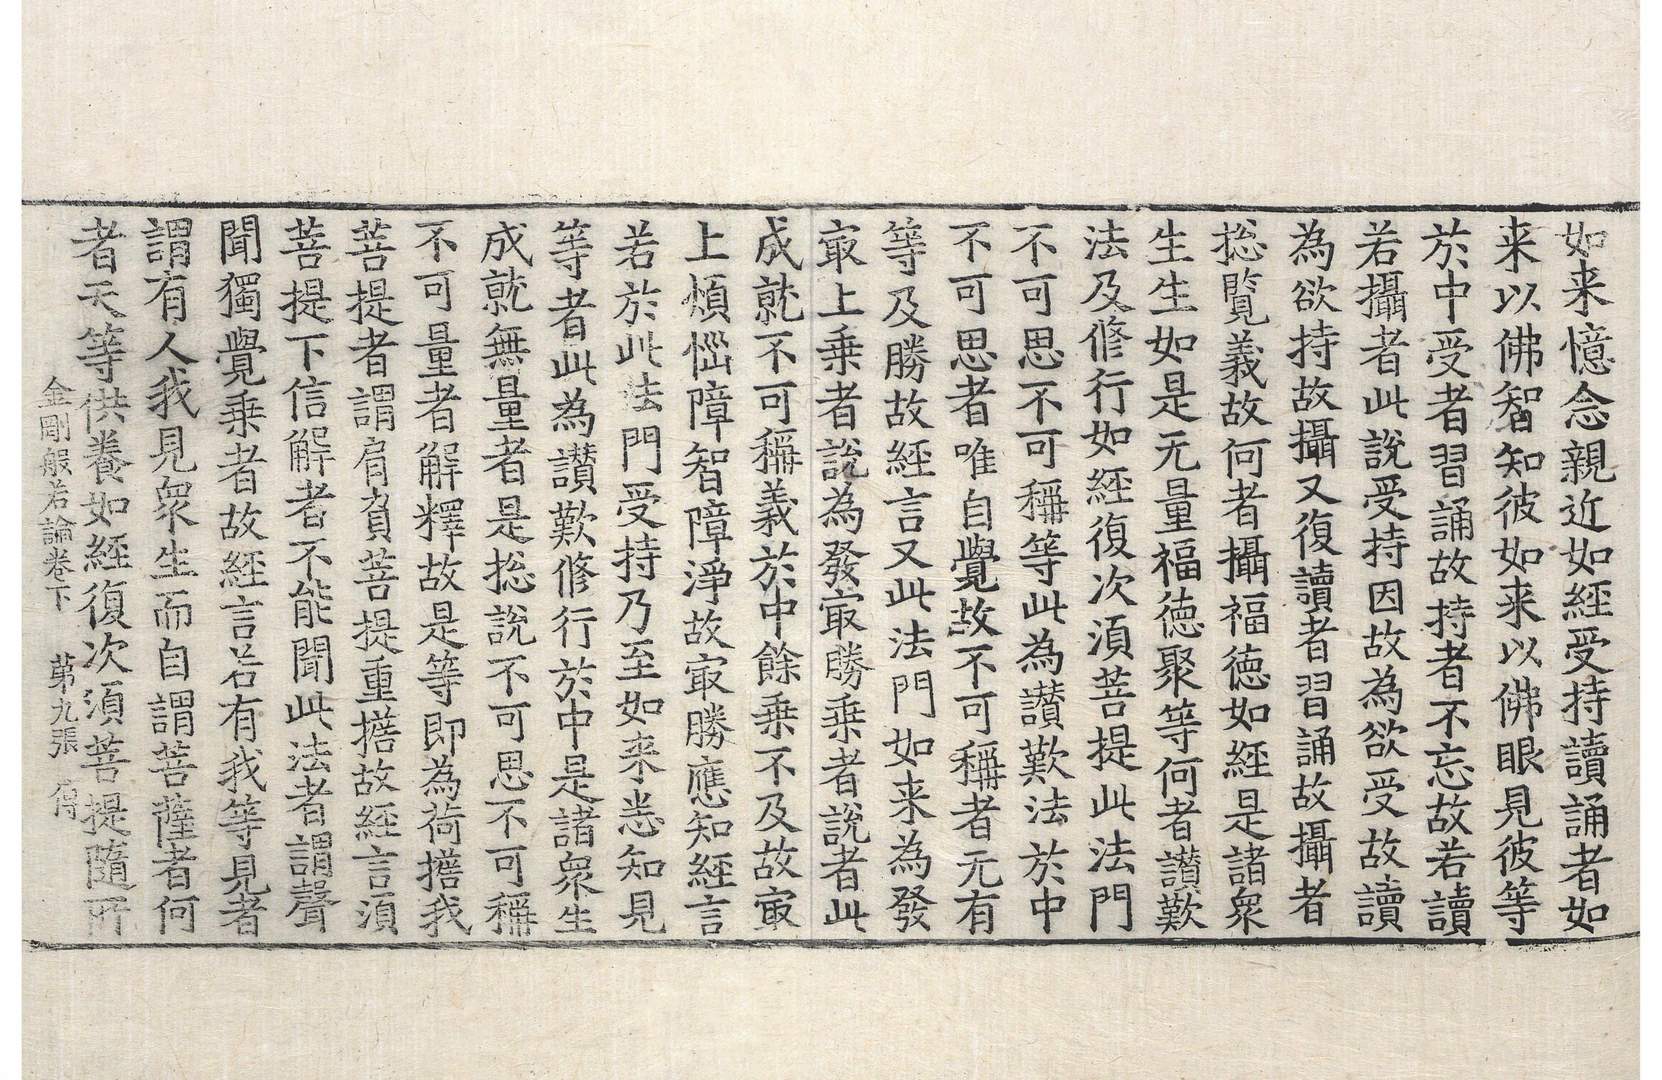 如来憶念親近如經受持讀誦者如
来以佛智知彼如来以佛眼見彼等
於中受者習誦故持者不忘故若讀
若攝者此說受持因故為欲受故讀
為欲持故攝又復讀者習誦故攝者
捴覽義故何者攝福德如經是諸衆
生生如是无量福德聚等何者讃歎
法及修行如經復次湏菩提此法門
不可思不可稱等此為讃歎法於中
不可思者唯自覺故不可稱者无有
等及勝故經言又此法門如来為發
㝡上乗者說為發㝡勝乗者說者此
成就不可稱義於中餘乗不及故㝡
上煩惱障智障淨故㝡勝應知經言
若於此法門受持乃至如来悉知見
等者此為讃歎修行於中是諸衆生
成就無量者是捴說不可思不可稱
不可量者解釋故是等即為荷擔我
菩提者謂肩負菩提重擔故經言湏
菩提下信解者不能聞此法者謂聲
聞獨覺乗者故經言若有我等見者
謂有人我見衆生而自謂菩薩者何
者天等供養如經復次湏菩提隨所
金剛般若論卷下　第九張　傷